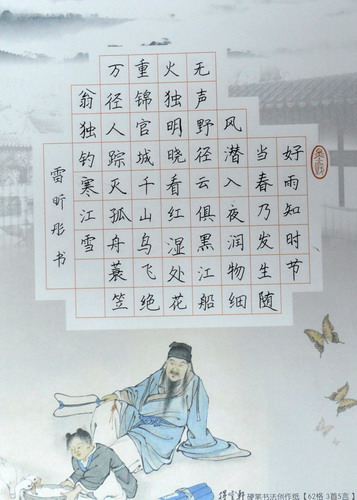 好雨知时节
当春乃发生随
风潜入夜润物细
无声野径云俱黑江船
火独明晓看红湿处花
重锦官城千山鸟飞绝
万径人踪灭孤舟蓑笠
翁独钓寒江雪
雷昕彤书
硬笔书法创作纸【62格 3首5言】